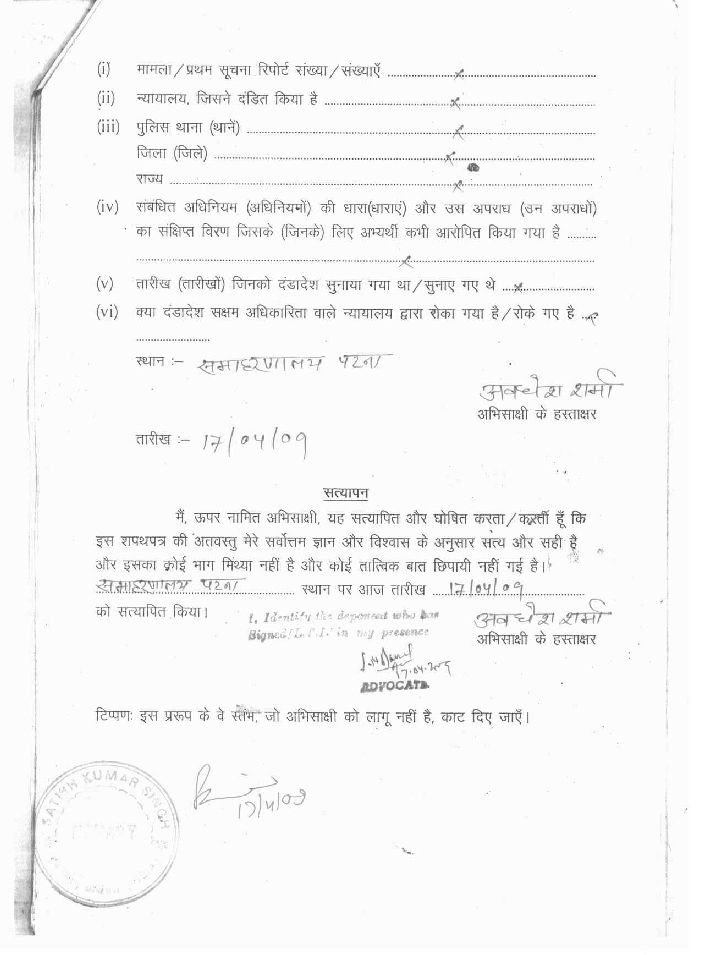 (i) मामला/प्रथम सूचना रिपोर्ट संख्या/संख्याएँ ......x......
(ii) न्यायालय, जिसने दंडित किया है ......x......
(iii) पुलिस थाना (थानें) ......x......
जिला (जिले) ......x......
राज्य ......x......
(iv) संबंधित अधिनियम (अधिनियमों) की धारा(धाराएं) और उस अपराध (उन अपराधों)
का संक्षिप्त विरण जिसके (जिनके) लिए अभ्यर्थी कभी आरोपित किया गया है ......
......x......
(v) तारीख (तारीखों) जिनको दंडादेश सुनाया गया था/सुनाए गए थे ...x......
(vi) क्या दंडादेश सक्षम अधिकारिता वाले न्यायालय द्वारा रोका गया है/रोके गए है ...x
......
स्थान :- समाहरणालय पटना
अवधेश शर्मा
अभिसाक्षी के हस्ताक्षर
तारीख :- 17/04/09
सत्यापन
मैं, ऊपर नामित अभिसाक्षी, यह सत्यापित और घोषित करता/करती हूँ कि
इस शपथपत्र की अतवस्तु मेरे सर्वोत्तम ज्ञान और विश्वास के अनुसार सत्य और सही है
और इसका कोई भाग मिथ्या नहीं है और कोई तात्विक बात छिपायी नहीं गई है।
समाहरणालय पटना ...... स्थान पर आज तारीख ...17/04/09......
को सत्यापित किया।
I, Identify the deponent who has
Signed/L.T.I. in my presence
अवधेश शर्मा
अभिसाक्षी के हस्ताक्षर
17.04.2009
ADVOCATE
टिप्पण: इस प्ररूप के वे स्तंभ, जो अभिसाक्षी को लागू नहीं है, काट दिए जाएँ।
17/4/09
SATISH KUMAR SINGH